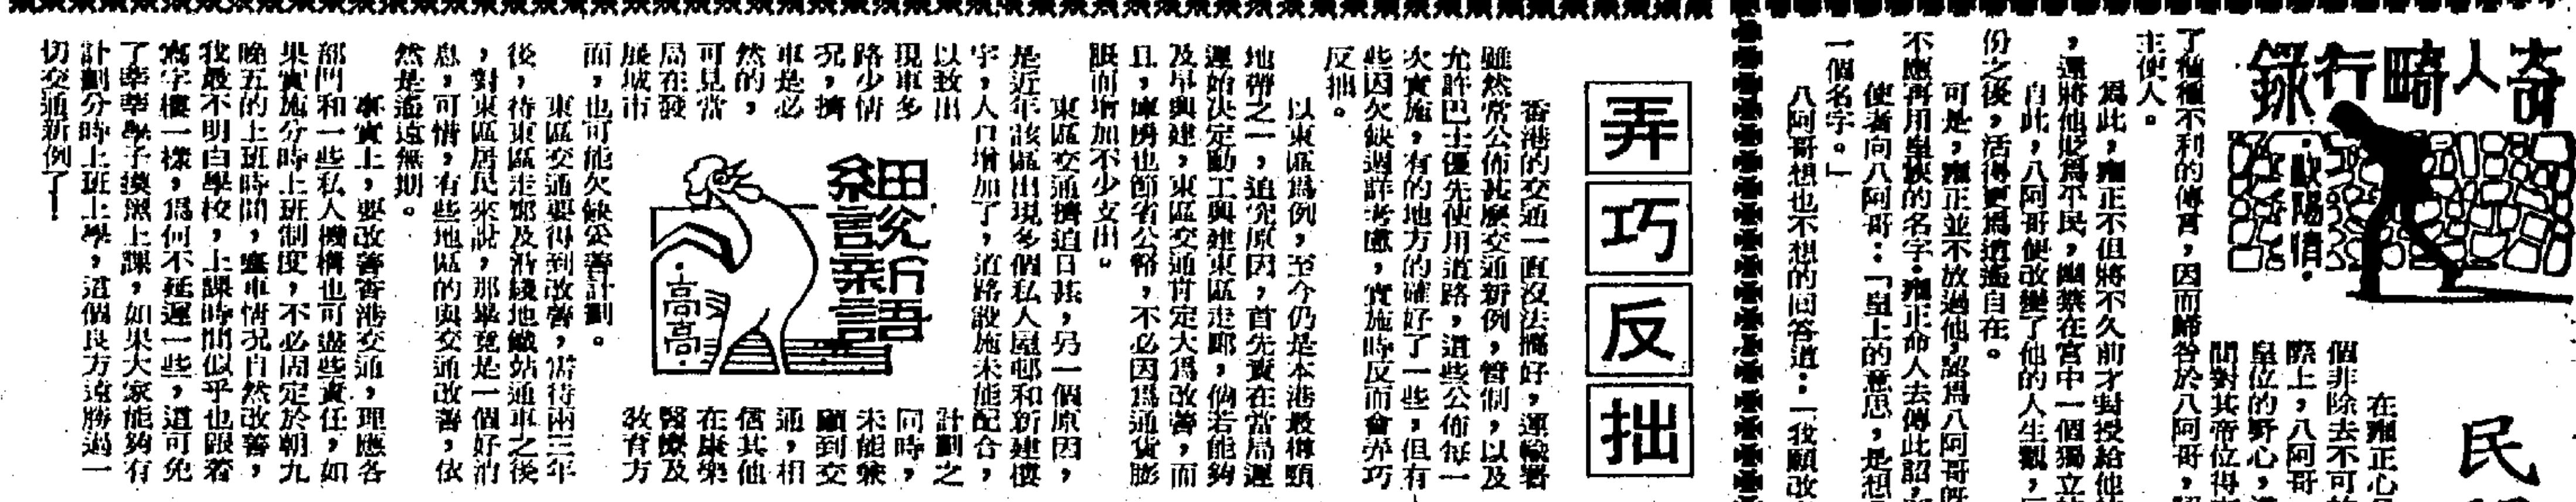 奇人畸行錄
·歐陽情·
民
在雍正心
個非除去不可
際上，八阿哥
皇位的野心，
間對其帝位得
了種種不利的傳言，因而歸咎於八阿哥，
主使人。
爲此，雍正不但將不久前才對授給他
，還將他貶爲平民，幽禁在宮中一個獨立
自此，八阿哥便改變了他的人生觀，
份之後，活得更爲逍遙自在。
可是，雍正並不放過他，認爲八阿哥旣
不應再用皇族的名字，雍正命人去傳此詔，
使者向八阿哥：「皇上的意思，是想
一個名字。」
八阿哥想也不想的回答道：「我願改
弄巧反拙
香港的交通一直沒法攪好，運輸署
雖然常公佈甚麽交通新例，管制，以及
允許巴士優先使用道路，這些公佈每一
次實施，有的地方的確好了一些，但有
些因欠缺週詳考慮，實施時反而會弄巧
反拙。
以東區爲例，至今仍是本港最樽頸
地帶之一，追究原因，首先責在當局遲
遲始決定動工興建東區走廊，倘若能夠
及早興建，東區交通肯定大爲改善，而
且，庫房也節省公帑，不必因爲通貨膨
脹而增加不少支出。
東區交通擠迫日甚，另一個原因，
是近年該區出現多個私人屋邨和新建樓
宇，人口增加了，道路設施未能配合，
細說新語
·高高·
以致出
現車多
路少情
況，擠
車是必
然的，
可見當
局在發
展城市
計劃之
同時，
未能兼
顧到交
通，相
信其他
在康樂
醫療及
敎育方
面，也可能欠缺妥善計劃。
東區交通要得到改善，需待兩三年
後，待東區走廊及沿綫地鐵站通車之後
，對東區居民來說，那畢竟是一個好消
息，可惜，有些地區的與交通改善，依
然是遙遠無期。
事實上，要改善香港交通，理應各
部門和一些私人機構也可盡些責任，如
果實施分時上班制度，不必固定於朝九
晚五的上班時間，塞車情況自然改善，
我最不明白學校，上課時間似乎也跟着
寫字樓一樣，爲何不延遲一些，這可免
了莘莘學子摸黑上課，如果大家能夠有
計劃分時上班上學，這個良方遠勝過一
切交通新例了！